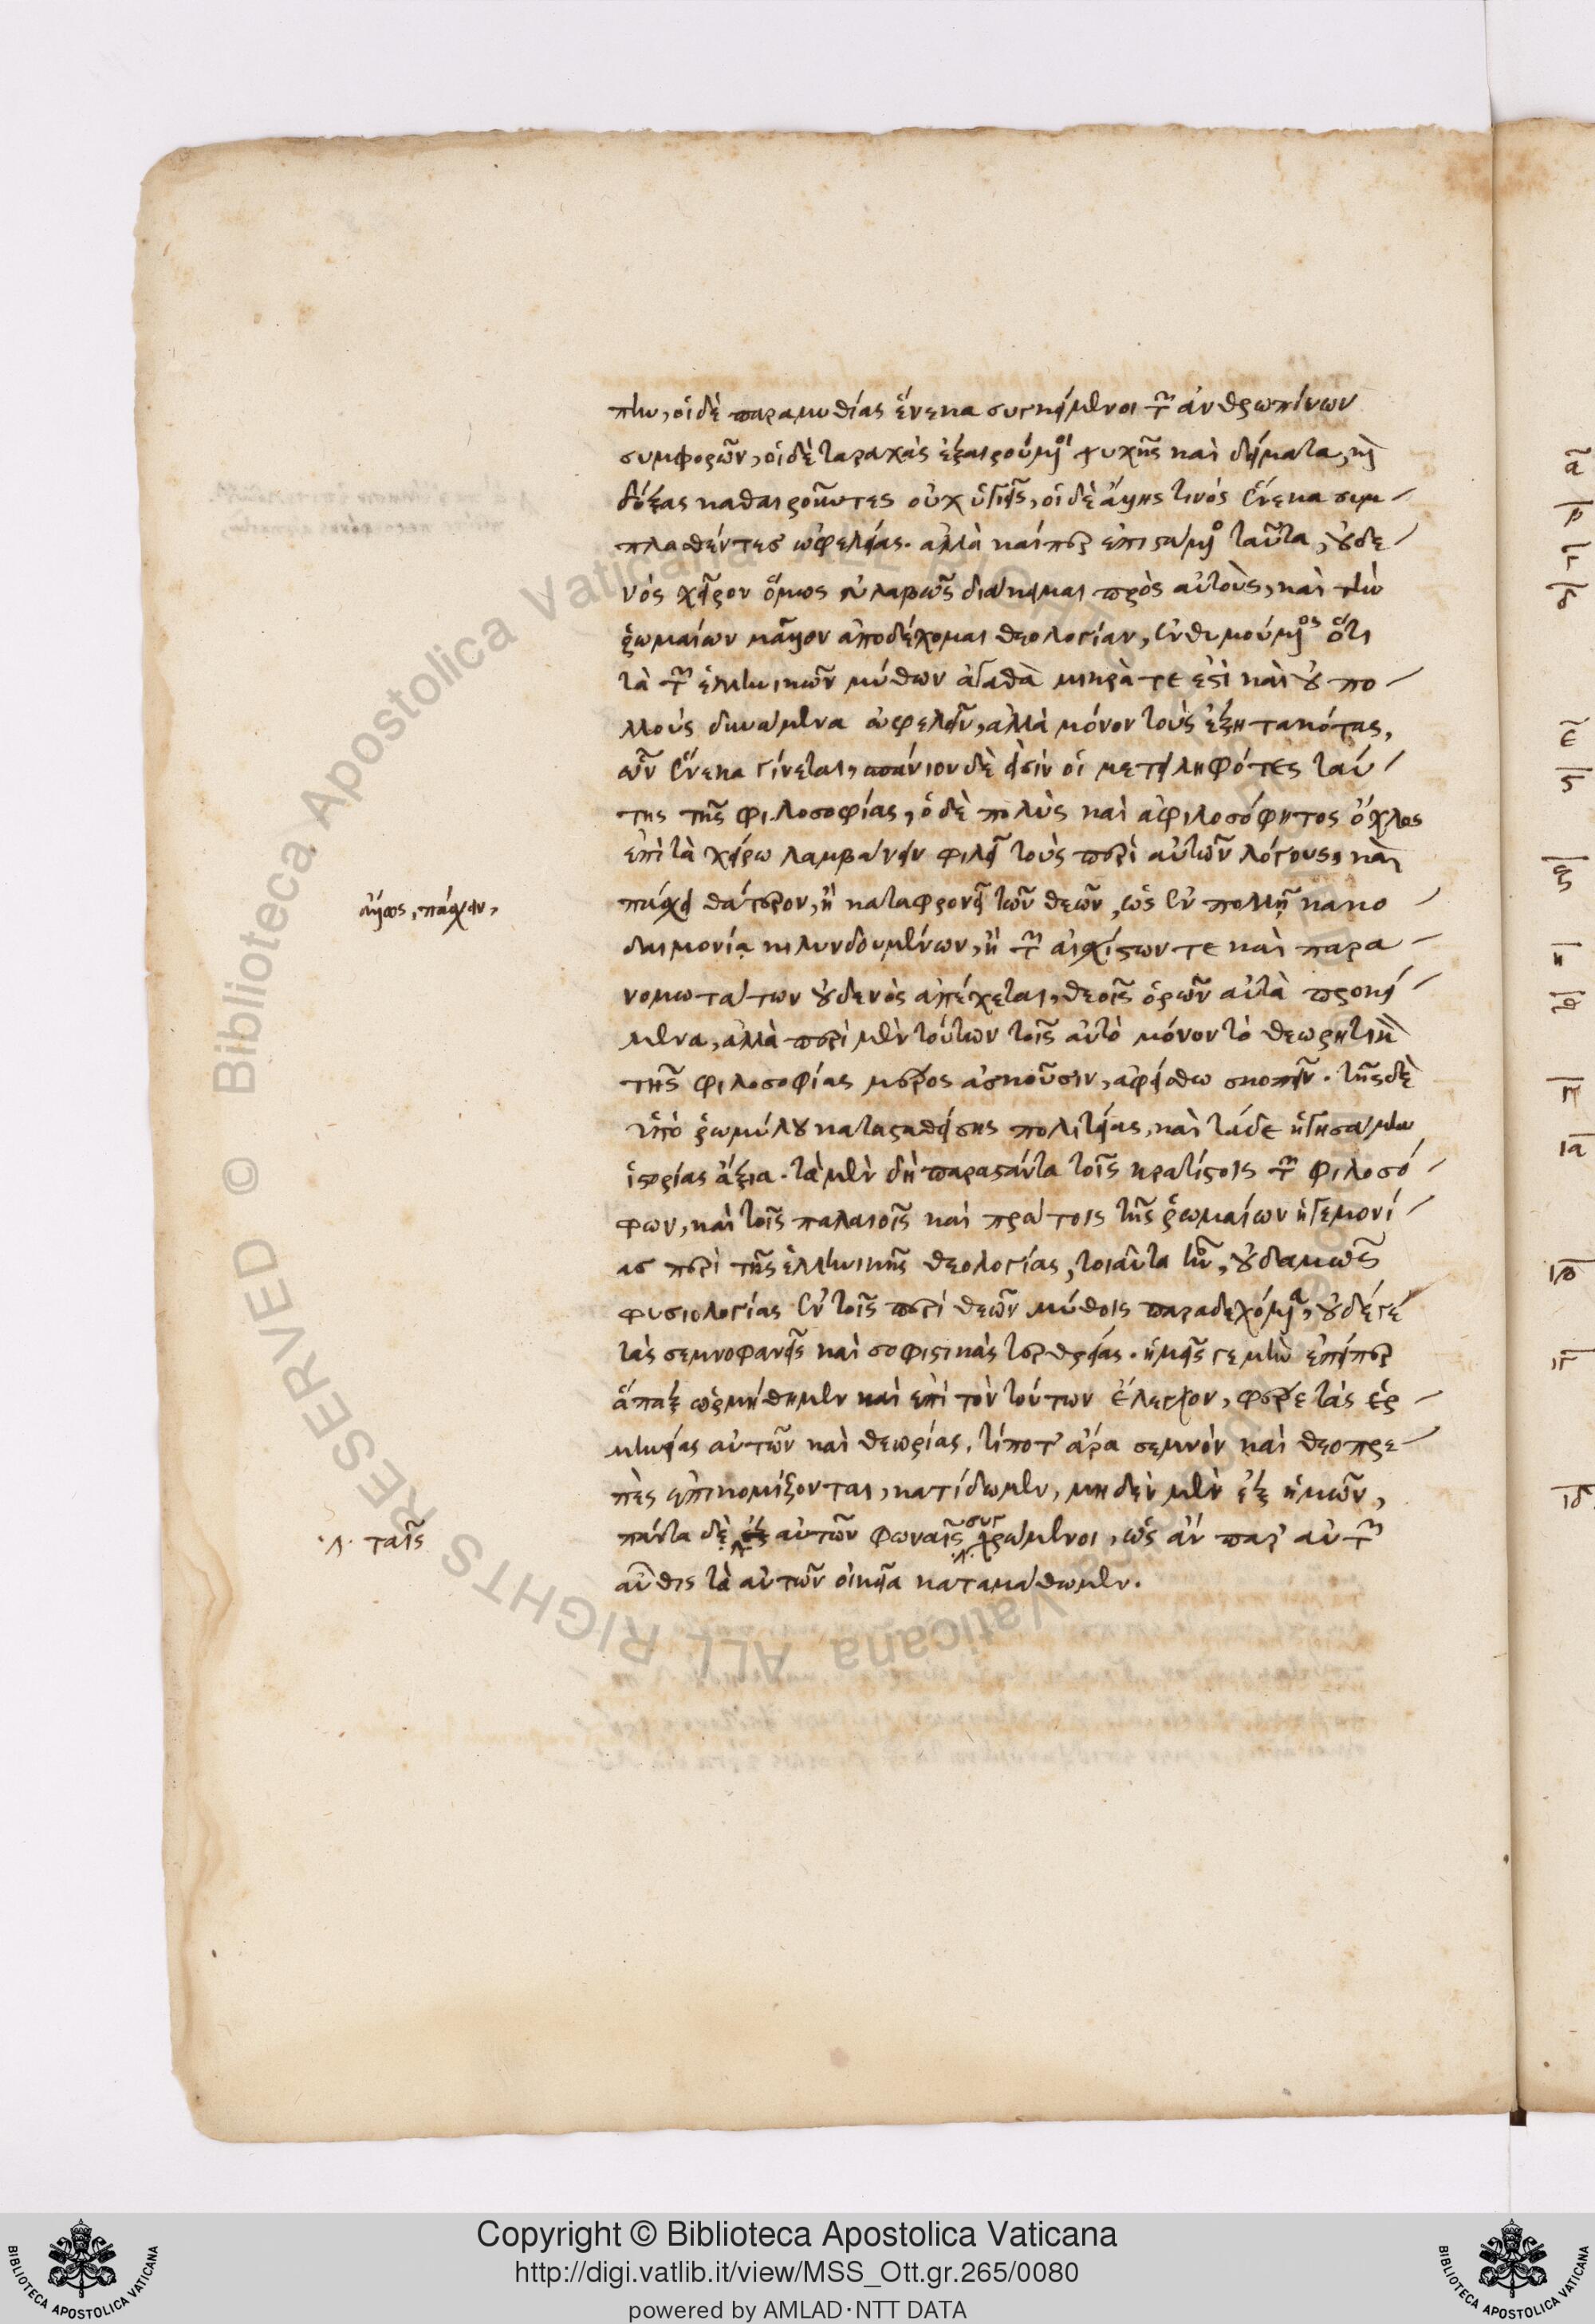 την, οἱ δὲ παραμυθίας ἕνεκα συγκείμενοι τῶν ἀνθρωπίνων
συμφορῶν, οἱ δὲ ταραχὰς ἐξαιρούμενοι ψυχῆς καὶ δείματα, καὶ
δόξας καθαιροῦντες οὐχ ὑγιεῖς, οἱ δὲ ἄλλης τινός ἕνεκα συμ-
πλαθέντες ὠφελείας. ἀλλὰ καίπερ ἐπιστάμενος ταῦτα, οὐδε
νός χεῖρον ὅμως εὐλαβῶς διάκειμαι πρὸς αὐτοὺς, καὶ τὴν
ῥωμαίων μᾶλλον ἀποδέχομαι θεολογίαν, ἐνθυμούμενος ὅτι
τὰ τῶν ἑλληνικῶν μύθων ἀγαθὰ μικρά τε ἐστὶ καὶ οὐ πο
λλοὺς δυνάμενα ὠφελεῖν, ἀλλὰ μόνον τοὺς ἐξητακότας,
ὧν ἕνεκα γίνεται, σπάνιον δὲ εἰσὶν οἱ μετειληφότες ταύ
της τῆς φιλοσοφίας, ὁ δὲ πολὺς καὶ ἀφιλοσόφητος ὄχλος
ἐπὶ τὰ χείρω λαμβάνειν φιλεῖ τοὺς περὶ αὐτῶν λόγους, καὶ
πάσχει θάτερον, ἢ καταφρονεῖ τῶν θεῶν, ὡς ἐν πολλῇ κακο
δαιμονίᾳ κυλινδουμένων, ἢ τῶν αἰσχίστων τε καὶ παρα
νομωτάτων οὐδενὸς ἀπέχεται, θεοῖς ὁρῶν αὐτὰ προκεί
μενα, ἀλλὰ περὶ μὲν τούτων τοῖς αὐτὸ μόνον τὸ θεωρητικὸν
τῆς φιλοσοφίας μέρος ἀσκοῦσιν, ἀφείσθω σκοπεῖν. τῆς δὲ
ὑπὸ ῥωμύλου κατασταθείσης πολιτείας, καὶ τάδε ἡγησάμην
ἱστορίας ἄξια. τὰ μὲν δὴ παραστάντα τοῖς κρατίστοις τῶν φιλοσό
φων, καὶ τοῖς παλαιοῖς καὶ πρώτοις τῆς ῥωμαίων ἡγεμονί
ας περὶ τῆς ἑλληνικῆς θεολογίας, τοιαῦτα ἦν, οὐδαμῶς
φυσιολογίας ἐν τοῖς περὶ θεῶν μύθοις παραδεχόμενα, οὐδέ γε
τὰς σεμνοφανεῖς καὶ σοφιστικὰς τερθρείας. ἡμεῖς γε μὴν ἐπείπερ
ἅπαξ ὡρμήθημεν καὶ ἐπὶ τὸν τούτων ἔλεγχον, φέρε τὰς ἑρ
μηνείας αὐτῶν καὶ θεωρίας, τίποτ' ἄρα σεμνὸν καὶ θεοπρε
πὲς ἐπικομίζονται, κατίδωμεν, μηδὲν μὲν ἐξ ἡμῶν,
πάντα δὲ ἐξ αὐτῶν φωναῖς συγχρώμενοι, ὡς ἂν παρ' αὐτῶν
αὖθις τὰ αὐτῶν οἰκεῖα καταμάθωμεν.
πάσχειν,
.λ. ταῖς
α
β
γ
δ
ε
ϛ
ζ
η
θ
ι
ια
ιβ
ιγ
ιδ
© Biblioteca Apostolica Vaticana ALL RIGHTS RESERVED
Copyright © Biblioteca Apostolica Vaticana
http://digi.vatlib.it/view/MSS_Ott.gr.265/0080
powered by AMLAD·NTT DATA
BIBLIOTECA APOSTOLICA VATICANA
BIBLIOTECA APOSTOLICA VATICANA